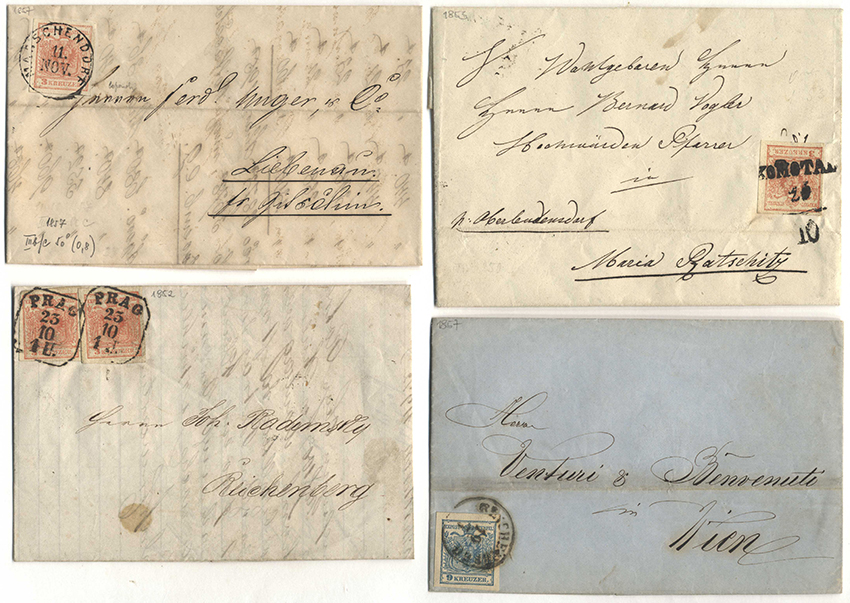 1857
MARSCHENDORF
11.
NOV.
3 KREUZER
Herrn Ferd. Unger, & Co.
Liebenau
pr Gitschin.
1857
III b/c 50° (0,8)
1855
Wohlgeboren Herrn
Herrn Bernard Vogler
Hochwürden Pfarrer
in
3 KREUZER
KOMOTAU
26
10
p. Oberleudensdorf
Maria Ratschitz
1852
PRAG
23
10
PRAG
23
10
3 KREUZER
Herrn Joh. Radimsky
Reichenberg
1857
Herrn
Venturi & Benvenuti
in
Wien
9 KREUZER